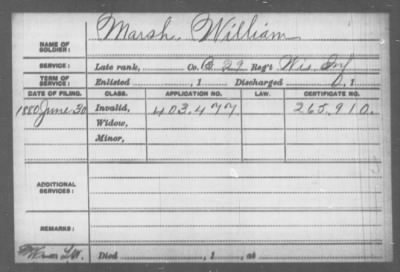 NAME OF SOLDIER: Marsh, William
SERVICE: Late rank, Co. B. 29 Reg't Wis. Inf
TERM OF SERVICE: Enlisted , 1 Discharged , 1
DATE OF FILING. CLASS. APPLICATION NO. LAW. CERTIFICATE NO.
1880 June 30 Invalid, 403.477 265.910.
Widow,
Minor,
ADDITIONAL SERVICES:
REMARKS:
Died , 1 , at